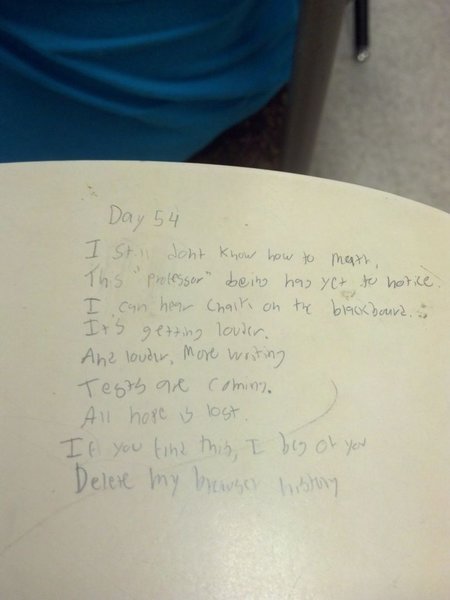 Day 54
I still dont know how to meath.
This "professor" being has yet to notice.
I can hear chalk on the blackboard.
It's getting louder.
And louder, More writing
Tests are coming.
All hope is lost.
If you find this, I beg of you
Delete my browser history